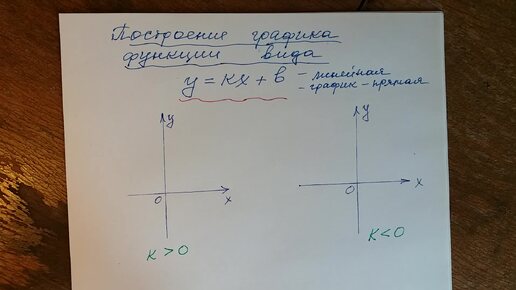 Построение графика
функции вида
y = kx + b
- линейная
- график - прямая
y
y
0
x
0
x
k > 0
k < 0